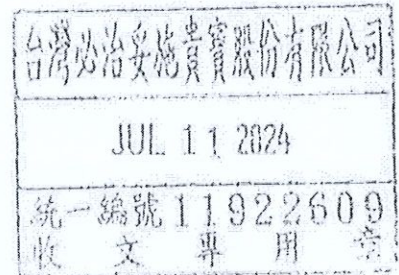 台灣必治妥施貴寶股份有限公司
JUL 11 2024
統一編號 11922609
收文專用章